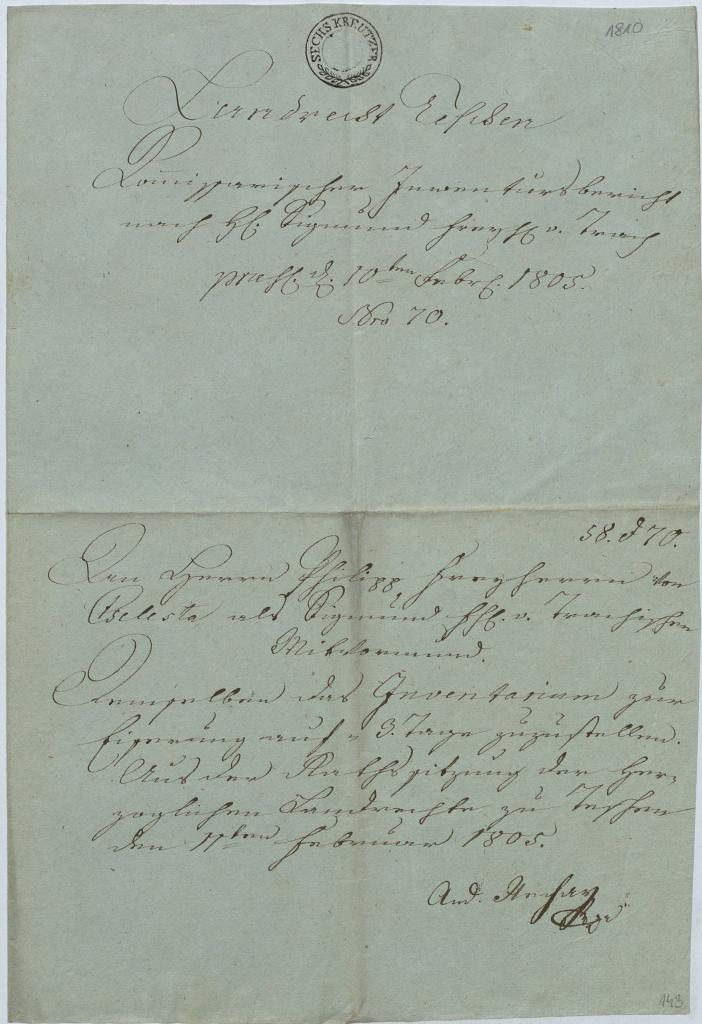 SECHS KREUTZER
1810
Landrecht Teschen
Commissarischer Inventursbericht
nach H. Sigmund Freyh. v. Trach
praes. d. 10ten Febr. 1805.
Nro 70.
58. 70.
An Herrn Philipp Freyherrn von
Beelesta als Sigmund Fhl. v. Trachischen
Mitvormund.
Demselben das Inventarium zur
auf 3. Tage zuzustellen.
Aus der Rathssitzung der Her¬
zoglichen Landrechte zu Teschen
den 11ten Februar 1805.
And.
143